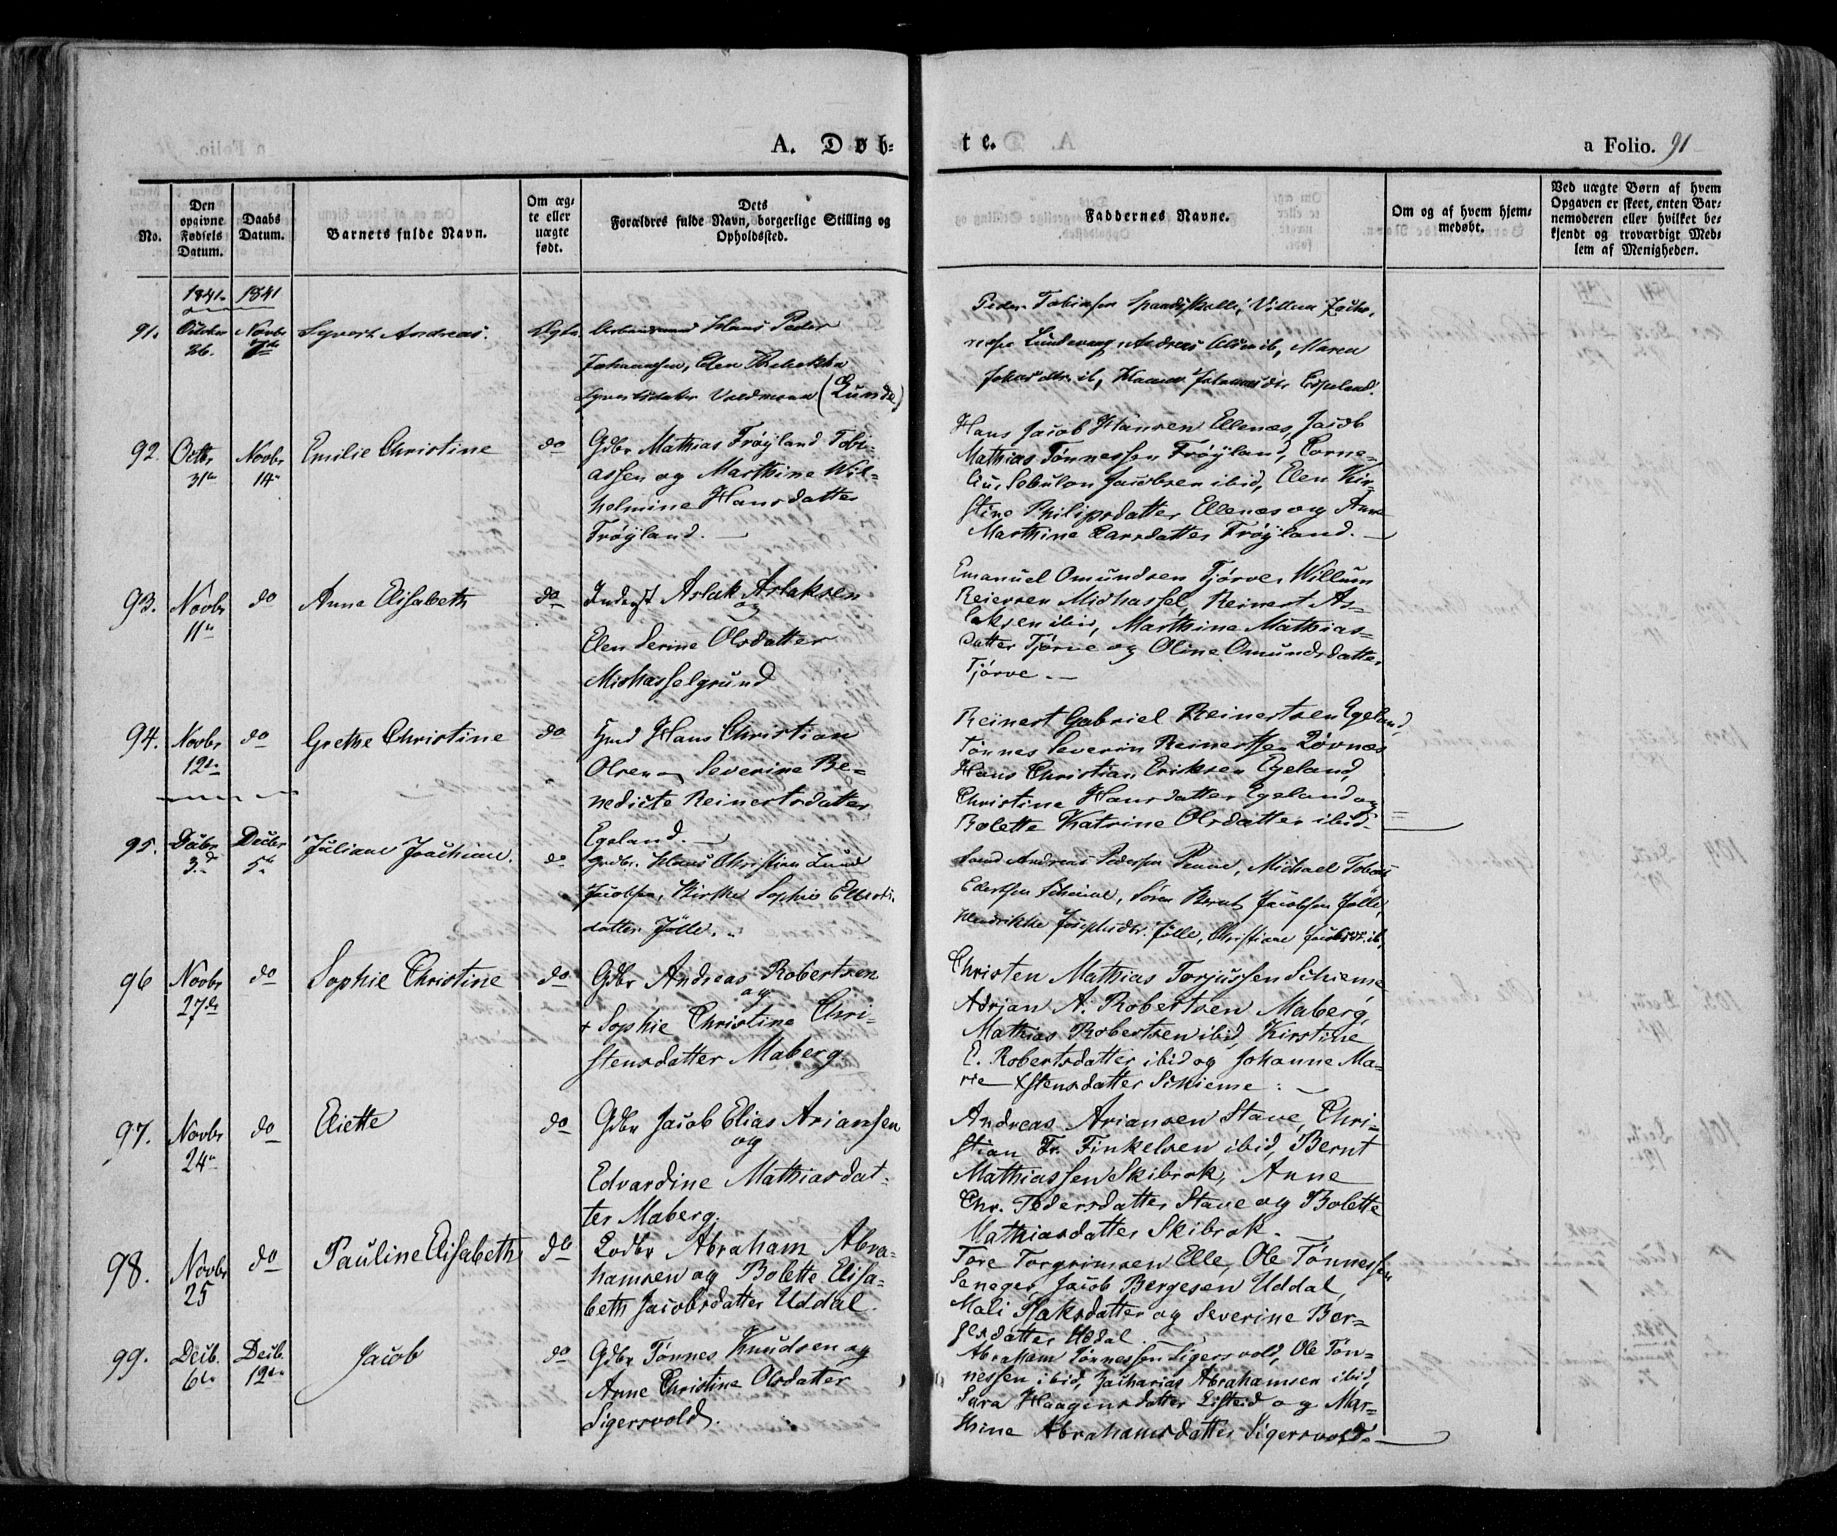 A. Døb-
te.
a Folio. 91
No.
Den opgivne Fødsels Datum.
Daabs Datum.
Barnets fulde Navn.
Om ægte eller uægte født.
Dets Forældres fulde Navn, borgerlige Stilling og Opholdssted.
Faddernes Navne.
Om og af hvem hjemmedøbt.
Ved uægte Børn af hvem
Opgaven er skeet, enten Bar-
nemoderen eller hvilket be-
kjendt og troværdigt Med-
lem af Menigheden.
1841. 1841
91. October 26. Novbr 7de Syvert Andreas. Ægte. Hans Peder
Johannssen, Elen Rebekka
Syvertsdatter Valdmann (Lunde)
Peder Tobiassen Spandskalli, Villum Zacha-
Lundevaag, Andreas Olsen ib, Maren
ib, Hanne Johannesdtr Espeland.
92. Octbr 31te Novbr 14de Emilie Christine do Gdbr Mathias Frøyland Tobi-
assen og Marthine Wil-
helmine Hansdatter
Frøÿland. —
Hans Jacob Hansen Ellenes, Jacob
Mathias Tønnessen Frøÿland, Corne-
lius Sebulon Jacobsen ibid, Elen Kir-
stine Philipsdatter Ellenes og Anne
Marthine Larsdatter Frøÿland. —
93. Novbr 11te do Anne Elisabeth do Inderst Aslak Aslaksen
og
Elen Serine Olsdatter
Midhasselgrund
Emanuel Omundsen Tjørve, Willum
Reiersen Midhassel, Reinert As-
laksen ibid, Marthine Mathias-
datter Tjørve og Oline Omundsdatter
Tjørve. —
94. Novbr 12te do Grethe Christine do Hans Christian
Olsen og Severine Be-
nedicte Reinertsdatter
Egeland. —
Reinert Gabriel Reinertsen Egeland,
Tønnes Severin Reinertsen Røvnes
Hans Christian Eriksen Egeland,
Christine Hansdatter Egeland og
Bolette Katrine Olsdatter ibid.
95. Decbr 3d Decbr 5te Juliane Joachime. do Grdbr. Hans Christian Lund
Jacobsen, Kirstine Sophie Ellerts-
datter Jølle.
Lund Andreas Pedersen Penne, Michael Tobias
Edertsen Scheime, Søren Bernt Jacobsen Jølle,
Hendrikke Josephsdtr. Jølle, Christiane Jacobsdtr ib.
96 Novbr 27de do Sophie Christine do Gdbr Andreas Robertsen
og
+ Sophie Christine Chri-
stensdatter Maberg.
Christen Mathias Torjussen Schieme
Adrian A. Robertsen Maberg,
Mathias Robertsen ibid, Kirstine
E. Robertsdatter ibid og Johanne Ma-
rie Xstensdatter Schieme : —
97. Novbr 24de do Eliette do Gdbr Jacob Elias Ariansen
og
Edvardine Mathiasdat-
ter Maberg.
Andreas Ariansen Stave, Chri-
stian Fr. Finkelsen ibid, Bernt
Mathiassen Skibrok, Anne
Chr. Pedersdatter Stave og Bolette
Mathiasdatter Skibrok.
98. Novbr 25 do Pauline Elisabeth do Lodbr Abraham Abra-
hamsen og Bolette Elisa-
beth Jacobsdatter Uddal.
Tore Torgrimsen Elle, Ole Tønnessen
Seneger, Jacob Bergesen Uddal,
Mali Flaksdatter og Severine Ber-
gesdatter Uddal. —
99. Decb. 6te Decb. 12te Jacob do Gdbr Tønnes Knudsen og
Anne Christine Olsdatter
Sigersvold.
Abraham Tønnessen Sigersvold, Ole Tøn-
nessen ibid, Zacharias Abrahamsen ibid,
Sara Haagensdatter og Mar-
thine Abrahamsdatter Sigersvold. —